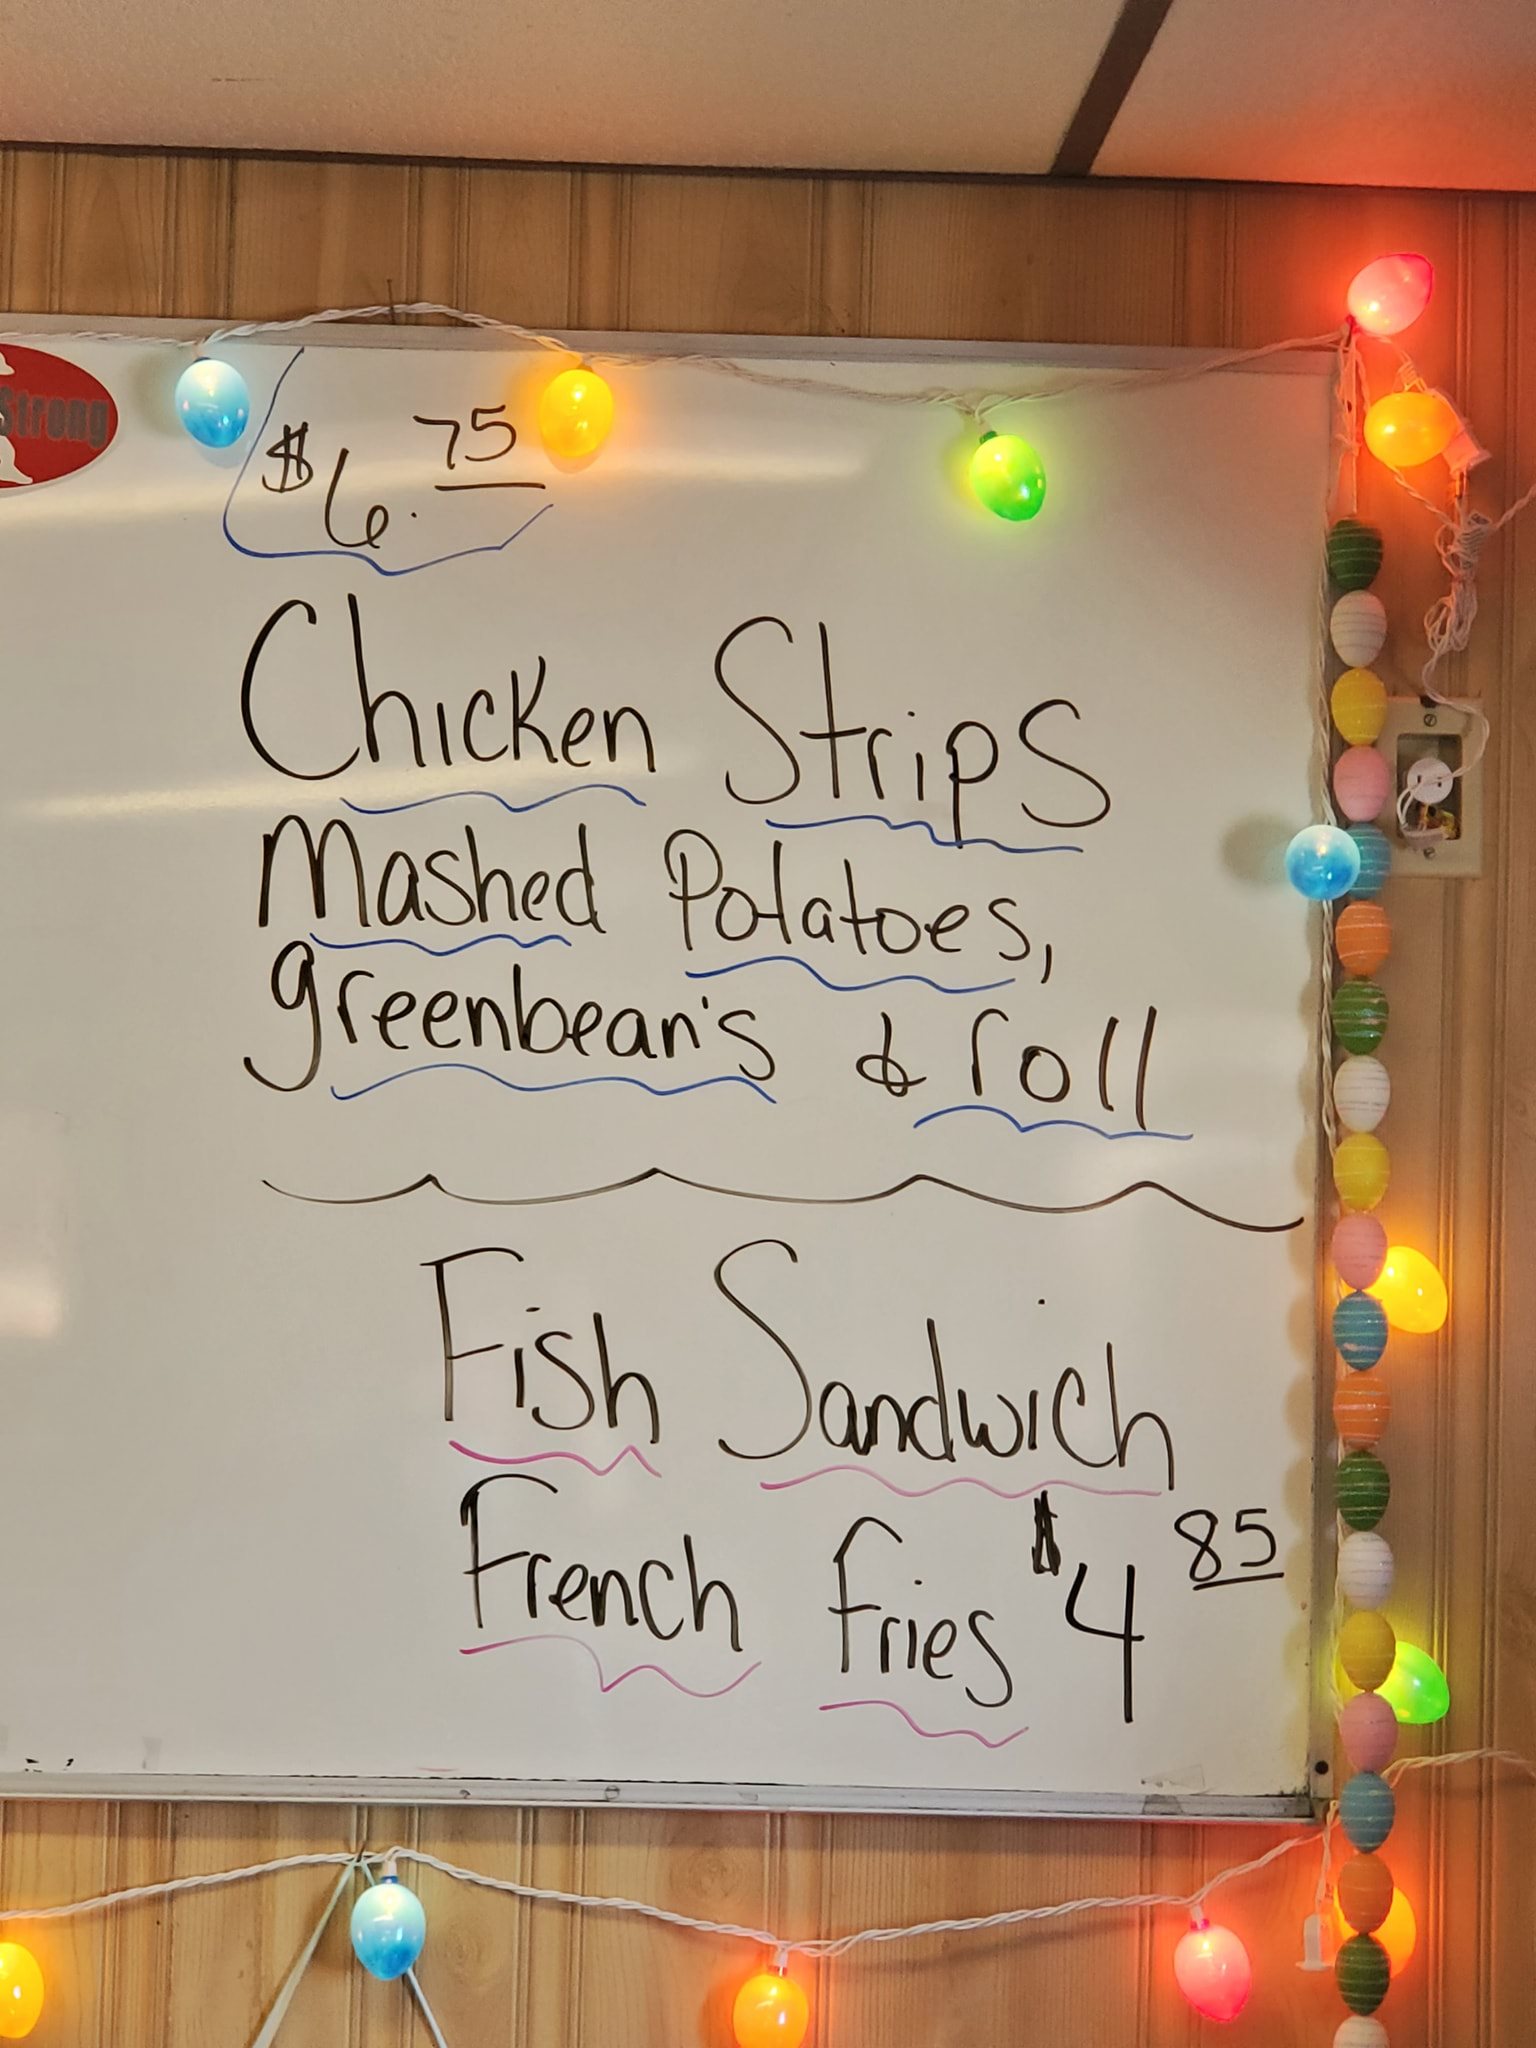 Strong
$6.75
Chicken Strips
Mashed Potatoes,
greenbean's & roll
Fish Sandwich
French Fries $4 85